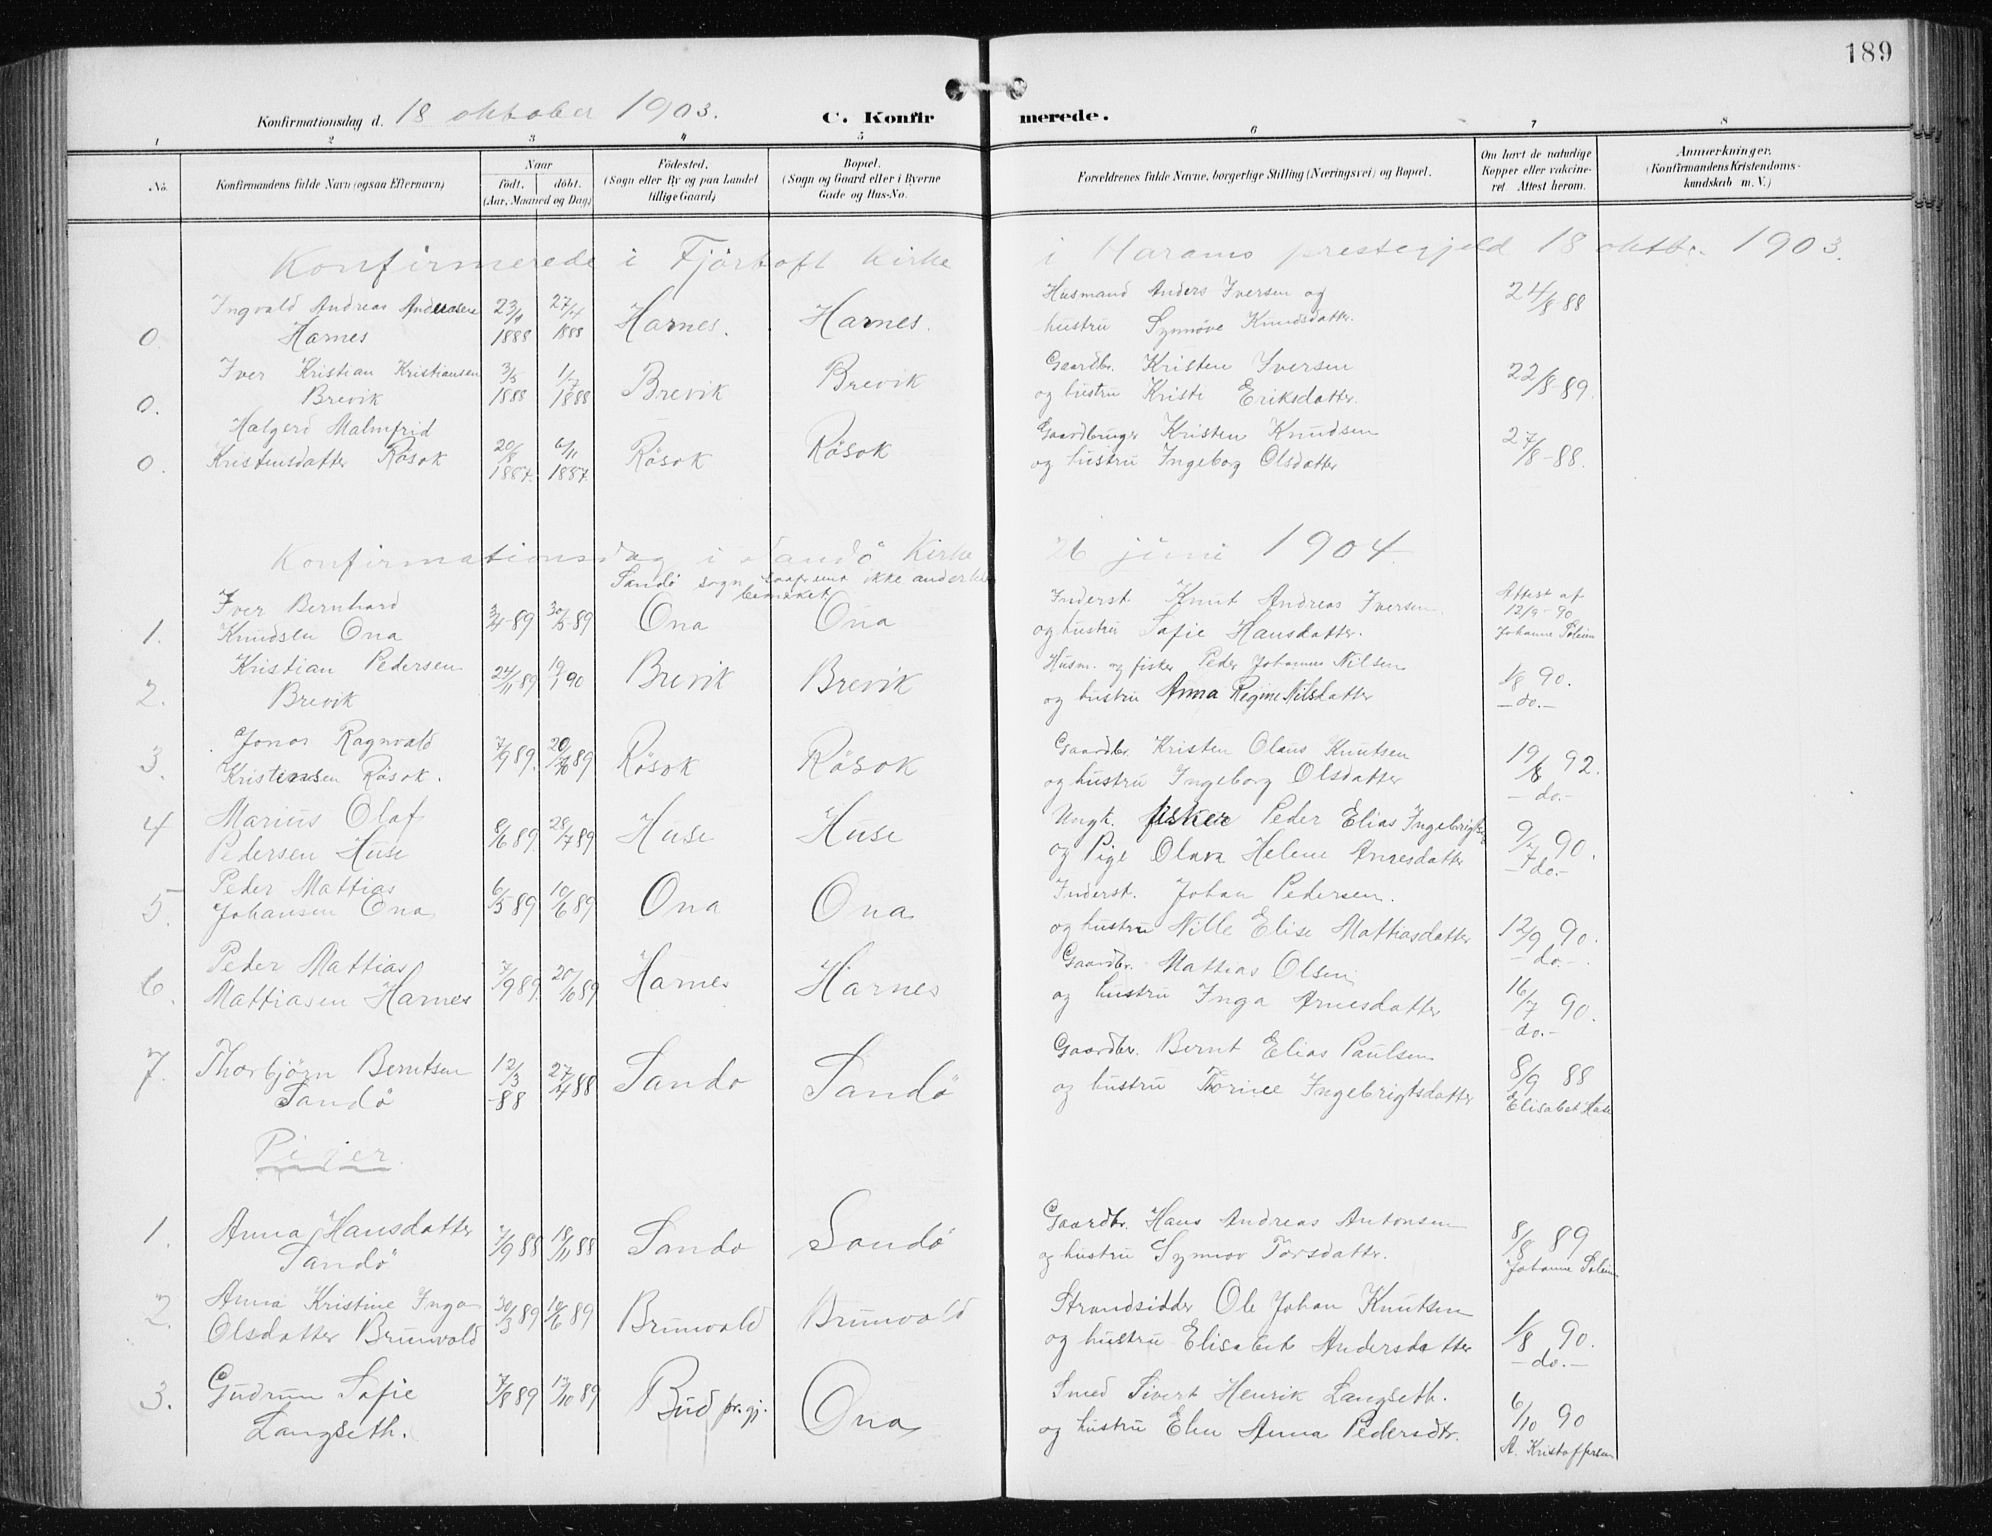 189
Konfirmationsdag d. 18 oktober 1903.
C. Konfirmerede.
1 2 3 4 5 6 7 8
No.
Konfirmandens fulde Navn (ogsaa Efternavn)
Naar
født. døbt.
(Aar, Maaned og Dag)
Fødested.
(Sogn eller By og paa Landet
tillige Gaard)
Bopæl.
(Sogn og Gaard eller i Byerne
Gade og Hus-No.
Forældrenes fulde Navne, borgerlige Stilling (Næringsvei) og Bopæl.
Om havt de naturlige
Kopper eller vakcine-
ret. Attest herom.
Anmærkninger.
(Konfirmandens Kristendoms-
kundskab m. V.)
Konfirmerede i Fjörtoft Kirke i Harams prestegjeld 18 oktbr. 1903.
Ingvald Andreas Andreasen 23/ 27/4 Harnes. Harnes. Husmand Anders Iversen og 24/8 88
0. Harnes 1888 1888 hustru Synnöve Knudsdatter.
Iver Kristian Kristiansen 3/5 1/7 Brevik Brevik Gaardbr. Kristen Iversen 22/8-89.
0. Brevik 1888 1888 og hustru Kristi Eriksdatter.
Halgerd Malmfrid 20/8 6/11 Rösok Rösok Gaardbruger Kristen Knudsen 27/8-88.
0. Kristensdatter Rösok 1887. 1887. og hustru Ingeborg Olsdatter
Konfirmationsdag i Sandö Kirke 26 juni 1904.
Sandö sogn saafremt ikke anderledes
bemærket
Iver Bernhard 3/4-89 30/5-89 Ona Ona Inderst. Knut Andreas Iversen. Attest af
12/9-90
1. Knudsen Ona og hustru Sofie Hansdatter. Johanne Solem
Kristian Pedersen 24/11 89 19/1 90 Brevik Brevik Husm. og fisker Peder Johannes Nilsen 1/8 90.
2. Brevik og hustru Anna Regine Nilsdatter -do.-
Jonas Ragnvald 7/9 89. 20/10 89 Rösok Rösok Gaardbr. Kristen Olaus Knutsen 19/8 92.
3. Kristensen Rösok. og hustru Ingeborg Olsdatter -do.-
4 Marius Olaf 8/6 89. 28/7 89 Huse Huse Ungk. fisker Peder Elias Ingebrigts. 9/7 90.
Pedersen Huse og Pige Olava Helene Arnesdatter -do.-
Peder Mattias 6/5 89 10/6 89 Ona Ona Inderst. Johan Pedersen. 12/9 90.
5. Johansen Ona og hustru Nille Elise Mattiasdatter -do.-
Peder Mattias 7/9 89. 20/10 89 Harnes Harnes Gaardbr. Mattias Olsen 16/7 90.
6. Mattiasen Harnes og hustru Inga Arnesdatter -do.-
7. Thorbjörn Berntsen 12/3 27/4 88 Sandö Sandö Gaardbr. Bernt Elias Paulsen 8/9 88
Sandö -88 og hustru Thorine Ingebrigtsdatter Elisabet Huse
Piger.
1. Anna Hansdatter 7/9 88 18/11 88 Sandö Sandö Gaardbr. Hans Andreas Antonsen 8/8 89
Sandö og hustru Synnöv Torsdatter. Johanne Solem
2. Anna Kristine Inga 30/3 89 10/6 89 Brunvold Brunvold Strandsidder Ole Johan Knutsen 1/8 90.
Olsdatter Brunvold og hustru Elisabet Andersdatter -do.-
3. Gudrun Sofie 7/8 89 13/10 89 Bud pr.gj. Ona Smed Sivert Henrik Langseth. 6/10 90
Langseth. og hustru Elen Anna Pedersdtr. A. Kristoffersen